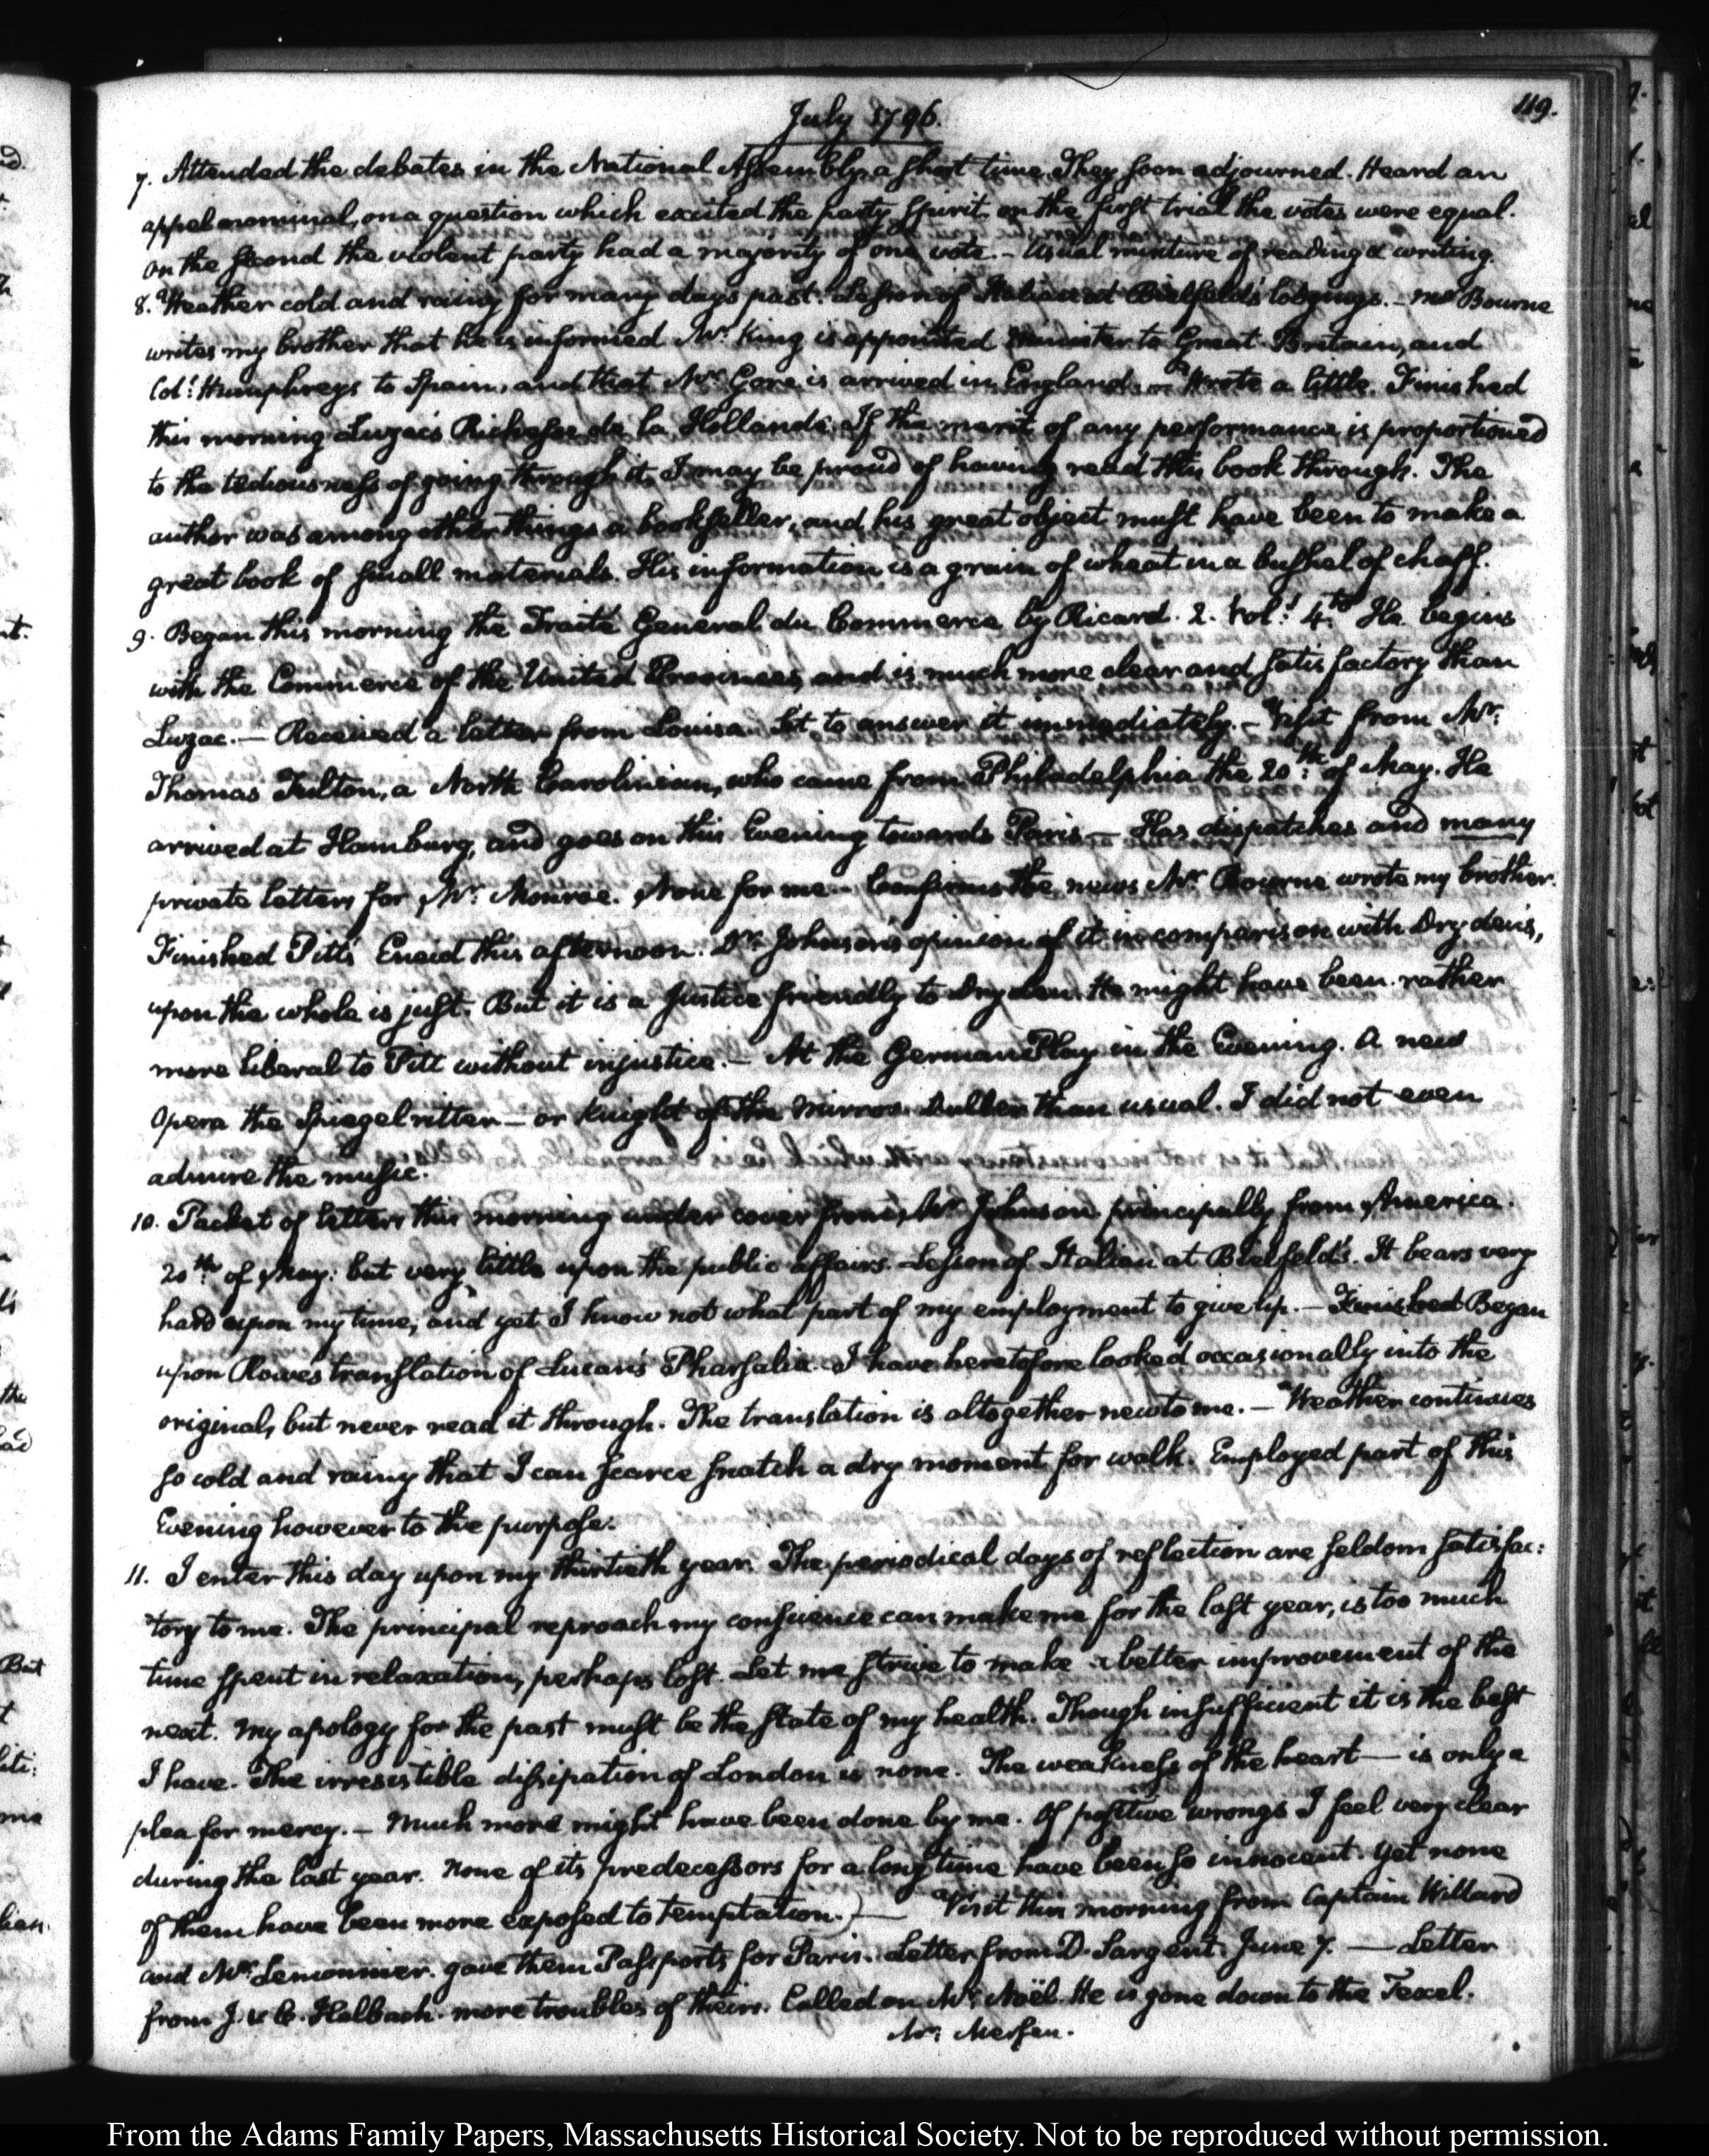 119.
July 1796.
7. Attended the debates in the National Assembly a short time. They soon adjourned. Heard an
appel nominal, on a question which excited the party spirit. on the first trial the votes were equal.
on the second the violent party had a majority of one vote. — Usual mixture of reading & writing.
8. Weather cold and rainy for many days past. Lesson of Italian at Bielfeld's lodgings. — Mr Bourne
writes my brother that he is informed Mr. King is appointed Minister to Great Britain, and
Col: Humphreys to Spain, and that Mr. Gore is arrived in England. — Wrote a little. Finished
this morning Luzac's Richesse de la Hollande. If the merit of any performance is proportioned
to the tediousness of going through it, I may be proud of having read this book through. The
author was among other things a bookseller, and his great object must have been to make a
great book of small materials. His information is a grain of wheat in a bushel of chaff.
9. Began this morning the Traité General du Commerce by Ricard. 2. Vol.s 4.to He begins
with the Commerce of the United Provinces, and is much more clear and satisfactory than
Luzac. — Received a letter from Louisa. Set to answer it immediately. — Visit from Mr.
Thomas Fulton, a North Carolinian, who came from Philadelphia the 20.th of May. He
arrived at Hamburg, and goes on this Evening towards Paris — Has dispatches and many
private letters for Mr. Monroe. None for me — Confirms the news Mr Bourne wrote my brother.
Finished Pitt's Eneid this afternoon. Dr. Johnson's opinion of it in comparison with Dryden's,
upon the whole is just. But it is a Justice friendly to Dryden. He might have been rather
more liberal to Pitt without injustice. — At the German Play in the Evening. A new
Opera the Spiegelritter — or Knight of the Mirror. Duller than usual. I did not even
admire the music.
10. Packet of letters this morning under cover from Mr Johnson principally from America.
20th. of May: but very little upon the public affairs. Lesson of Italian at Bielfeld's. It bears very
hard upon my time, and yet I know not what part of my employment to give up. — Finished Began
upon Rowe's translation of Lucan's Pharsalia. I have heretofore looked occasionally into the
original, but never read it through. The translation is altogether new to me. — Weather continues
so cold and rainy that I can scarce snatch a dry moment for walk. Employed part of this
Evening however to the purpose.
11. I enter this day upon my thirtieth year. The periodical days of reflection are seldom satisfac:
tory to me. The principal reproach my conscience can make me for the last year, is too much
time spent in relaxation, perhaps lost. Let me strive to make a better improvement of the
next. My apology for the past must be the state of my health. Though insufficient it is the best
I have. The irresistible dissipation of London is none. The weakness of the heart — is only a
plea for mercy. — Much more might have been done by me. Of positive wrongs I feel very clear
during the last year. None of its predecessors for a long time have been so innocent. Yet none
of them have been more exposed to temptation.) — Visit this morning from Captain Willard
and Mr. Lemonnier. gave them Passports for Paris. Letter from D. Sargent. June 7. — Letter
from J. & C. Halbach. more troubles of theirs. Called on Mr. Noël. He is gone down to the Texel.
Mr:
From the Adams Family Papers, Massachusetts Historical Society. Not to be reproduced without permission.